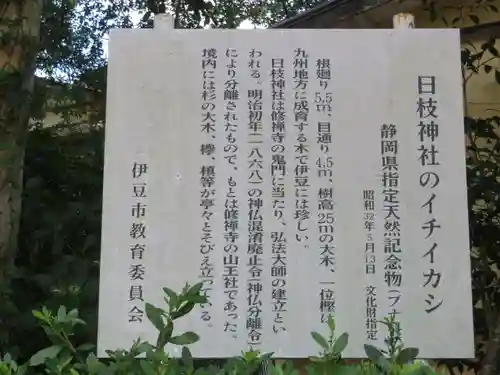 日枝神社のイチイカシ
静岡県指定天然記念物
昭和32年5月13日 文化財指定
根廻り5.5m、目通り4.5m、樹高25mの大木、一位樫は
九州地方に成育する木で伊豆には珍しい。
日枝神社は修禅寺の鬼門に当たり、弘法大師の建立とい
われる。明治初年(一八六八)の神仏混淆廃止令(神仏分離令)
により分離されたもので、もとは修禅寺の山王社であった。
境内には杉の大木、欅、槙等が亭々とそびえ立つている。
伊豆市教育委員会